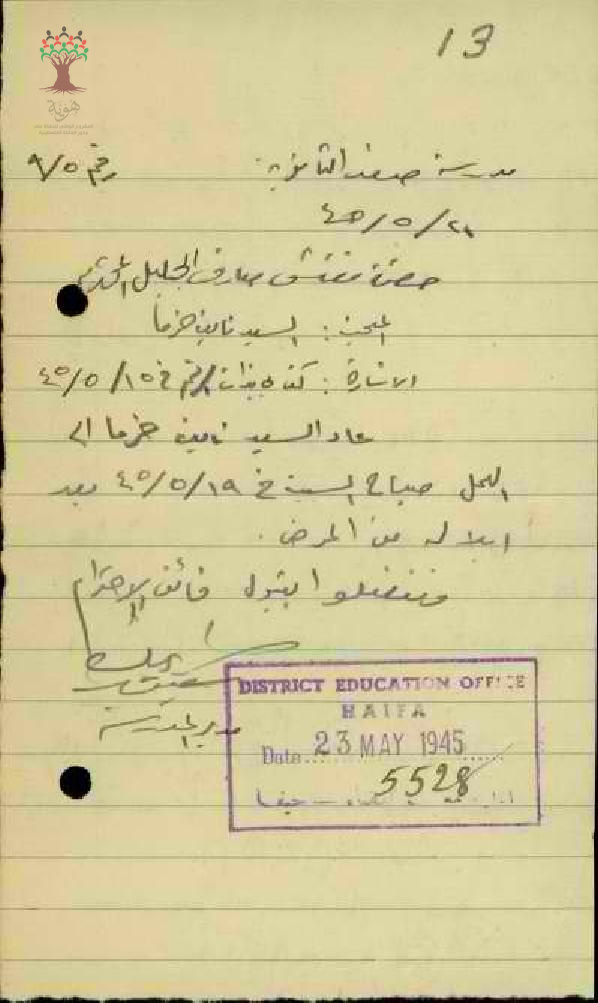 13
هوية
مدرسة صفد الثانوية رقم ٩/٥
٤٥/٥/٢١
حضرة مفتش معارف الجليل المحترم
المبحث: السيد نايف خرما
الاشارة: كتابي ذات الرقم في ٤٥/٥/١٥
عاد السيد نايف خرما الى
العمل صباح السبت في ٤٥/٥/١٩ بعد
ابلاله من المرض.
وتفضلوا بقبول فائق الاحترام
مدير المدرسة
DISTRICT EDUCATION OFFICE
HAIFA
Date 23 MAY 1945
5528
حيفا